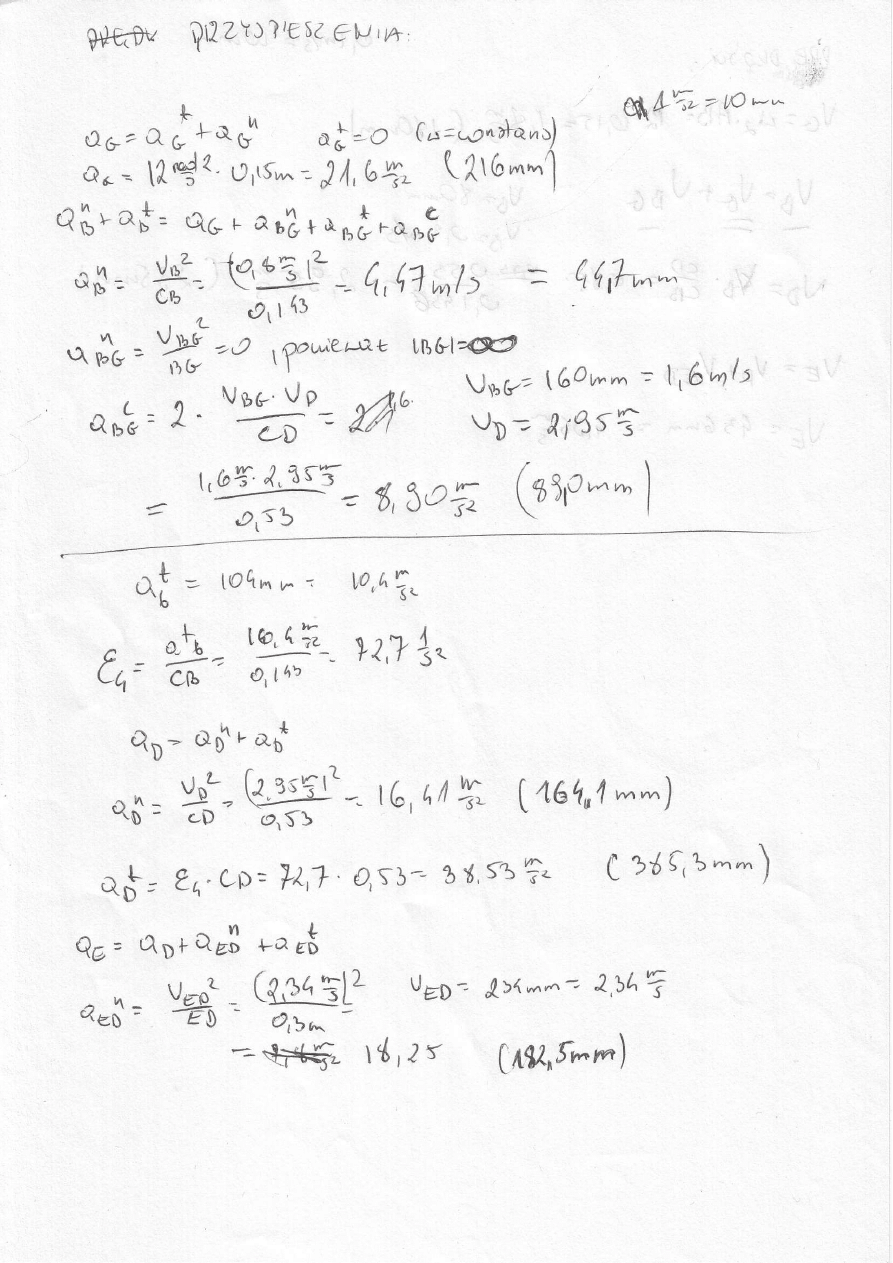 PRZYSPIESZENIA:
1 m/s² = 10mm
a_G = a_G^t + a_G^n a_G^t = 0 (ω = constans)
a_G = 12 rad/s ² · 0,15m = 21,6 m/s² (216mm)
a_B^n + a_B^t = a_G + a_BG^n + a_BG^t + a_BG^c
a_B^n = V_B²/CB = (0,8 m/s)²/0,143 = 4,47 m/s = 44,7mm
a_BG^n = V_BG²/BG = 0, ponieważ |BG| = ∞
V_BG = 160mm = 1,6 m/s
a_BG^c = 2 · V_BG · V_D/CD =
V_D = 2,95 m/s
= 1,6 m/s · 2,95 m/s/0,53 = 8,90 m/s² (89,0mm)
a_b^t = 104mm = 10,4 m/s²
ε_4 = a^t_b/CB = 10,4 m/s²/0,143 = 72,7 1/s²
a_D = a_D^n + a_D^t
a_D^n = V_D²/CD = (2,95 m/s)²/0,53 = 16,41 m/s² (164,1mm)
a_D^t = ε_4 · CD = 72,7 · 0,53 = 38,53 m/s² (385,3mm)
a_E = a_D + a_ED^n + a_ED^t
a_ED^n = V_ED²/ED = (2,34 m/s)²/0,3m = V_ED = 234mm = 2,34 m/s
= 18,25 (182,5mm)